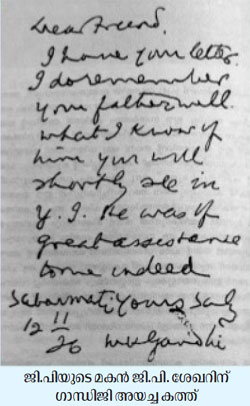 Dear Friend,
I have your letter.
I do remember
your father well.
What I know of
him you will
shortly see in
Y. I. He was of
great assistance
to me indeed
Sabarmati Yours Sinly
12/11/26 MKGandhi
ജി.പിയുടെ മകൻ ജി.പി. ശേഖറിന്
ഗാന്ധിജി അയച്ച കത്ത്